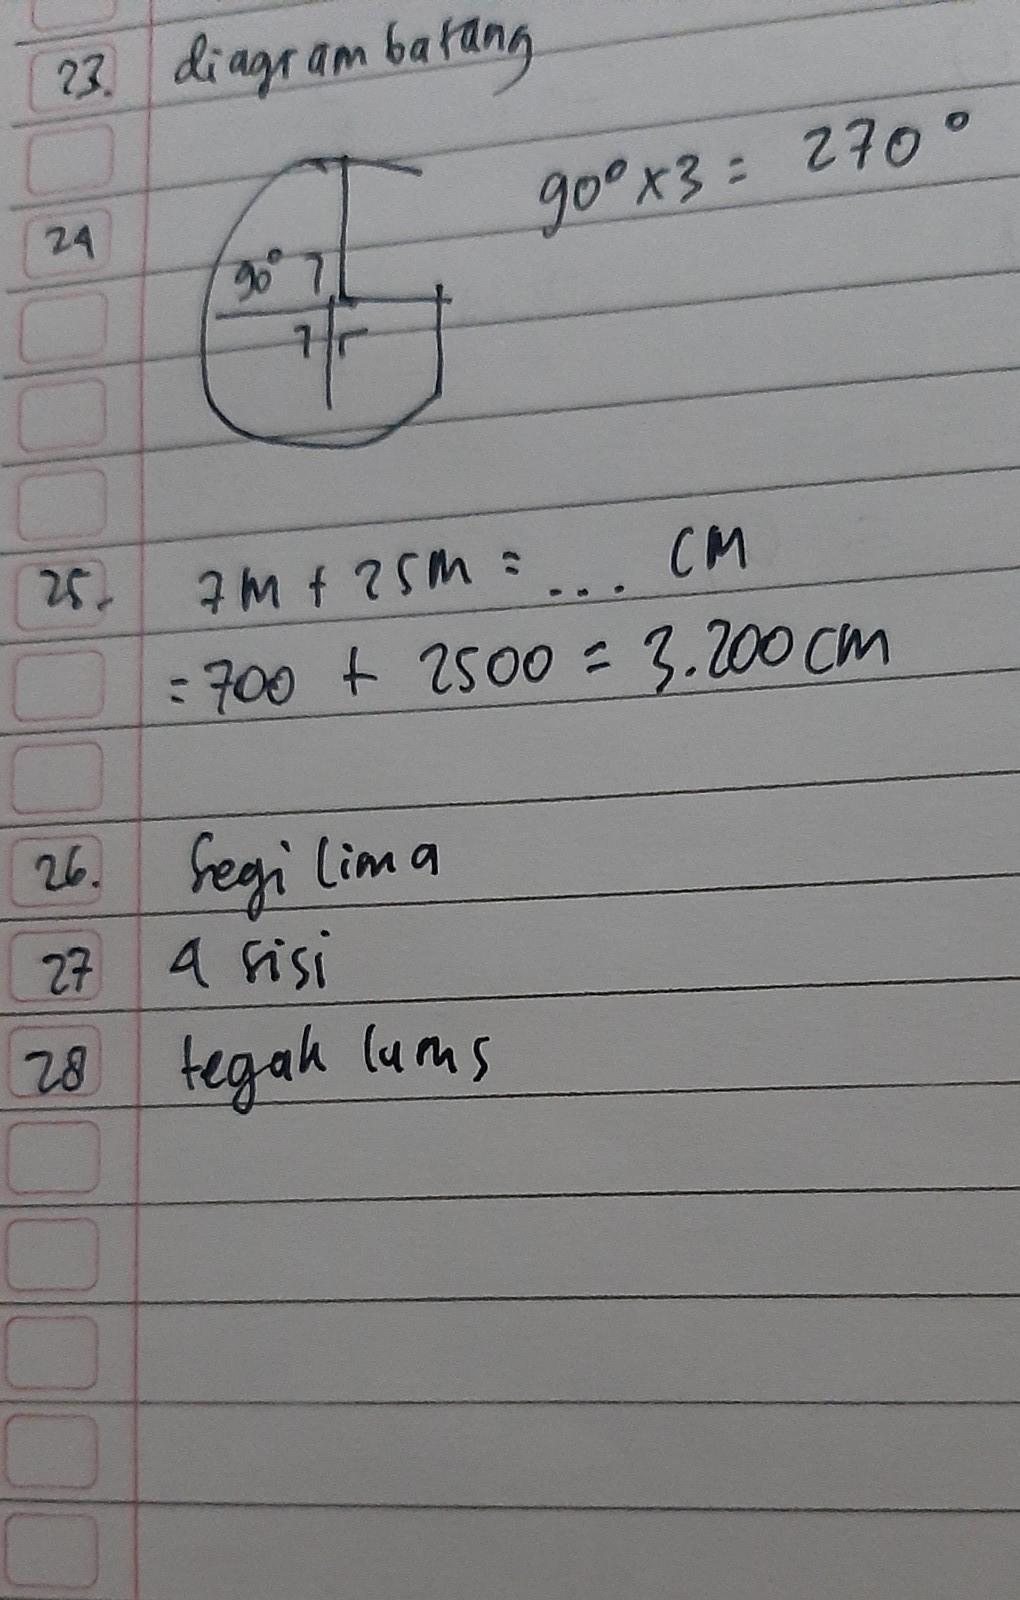 23. diagram batang
90° x 3 = 270°
24
90°
25. 7M + 25M = ... CM
= 700 + 2500 = 3.200 cm
26. Segi lima
27 4 sisi
28 tegak lurus